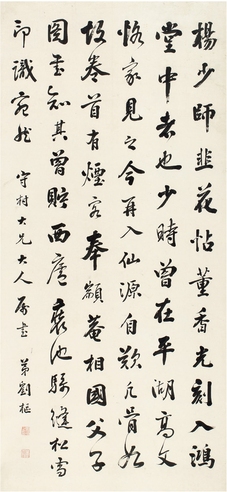 楊少師韭花帖董香光刻入鴻
堂中者也少時曾在平湖高文
恪家見之今再入仙源自歎凡骨如
故卷首有煙客奉額菴相國父子
圖書知其曾貯西廬裱池騎縫松雪
印識宛然 守村大兄大人屬書 弟劉柾